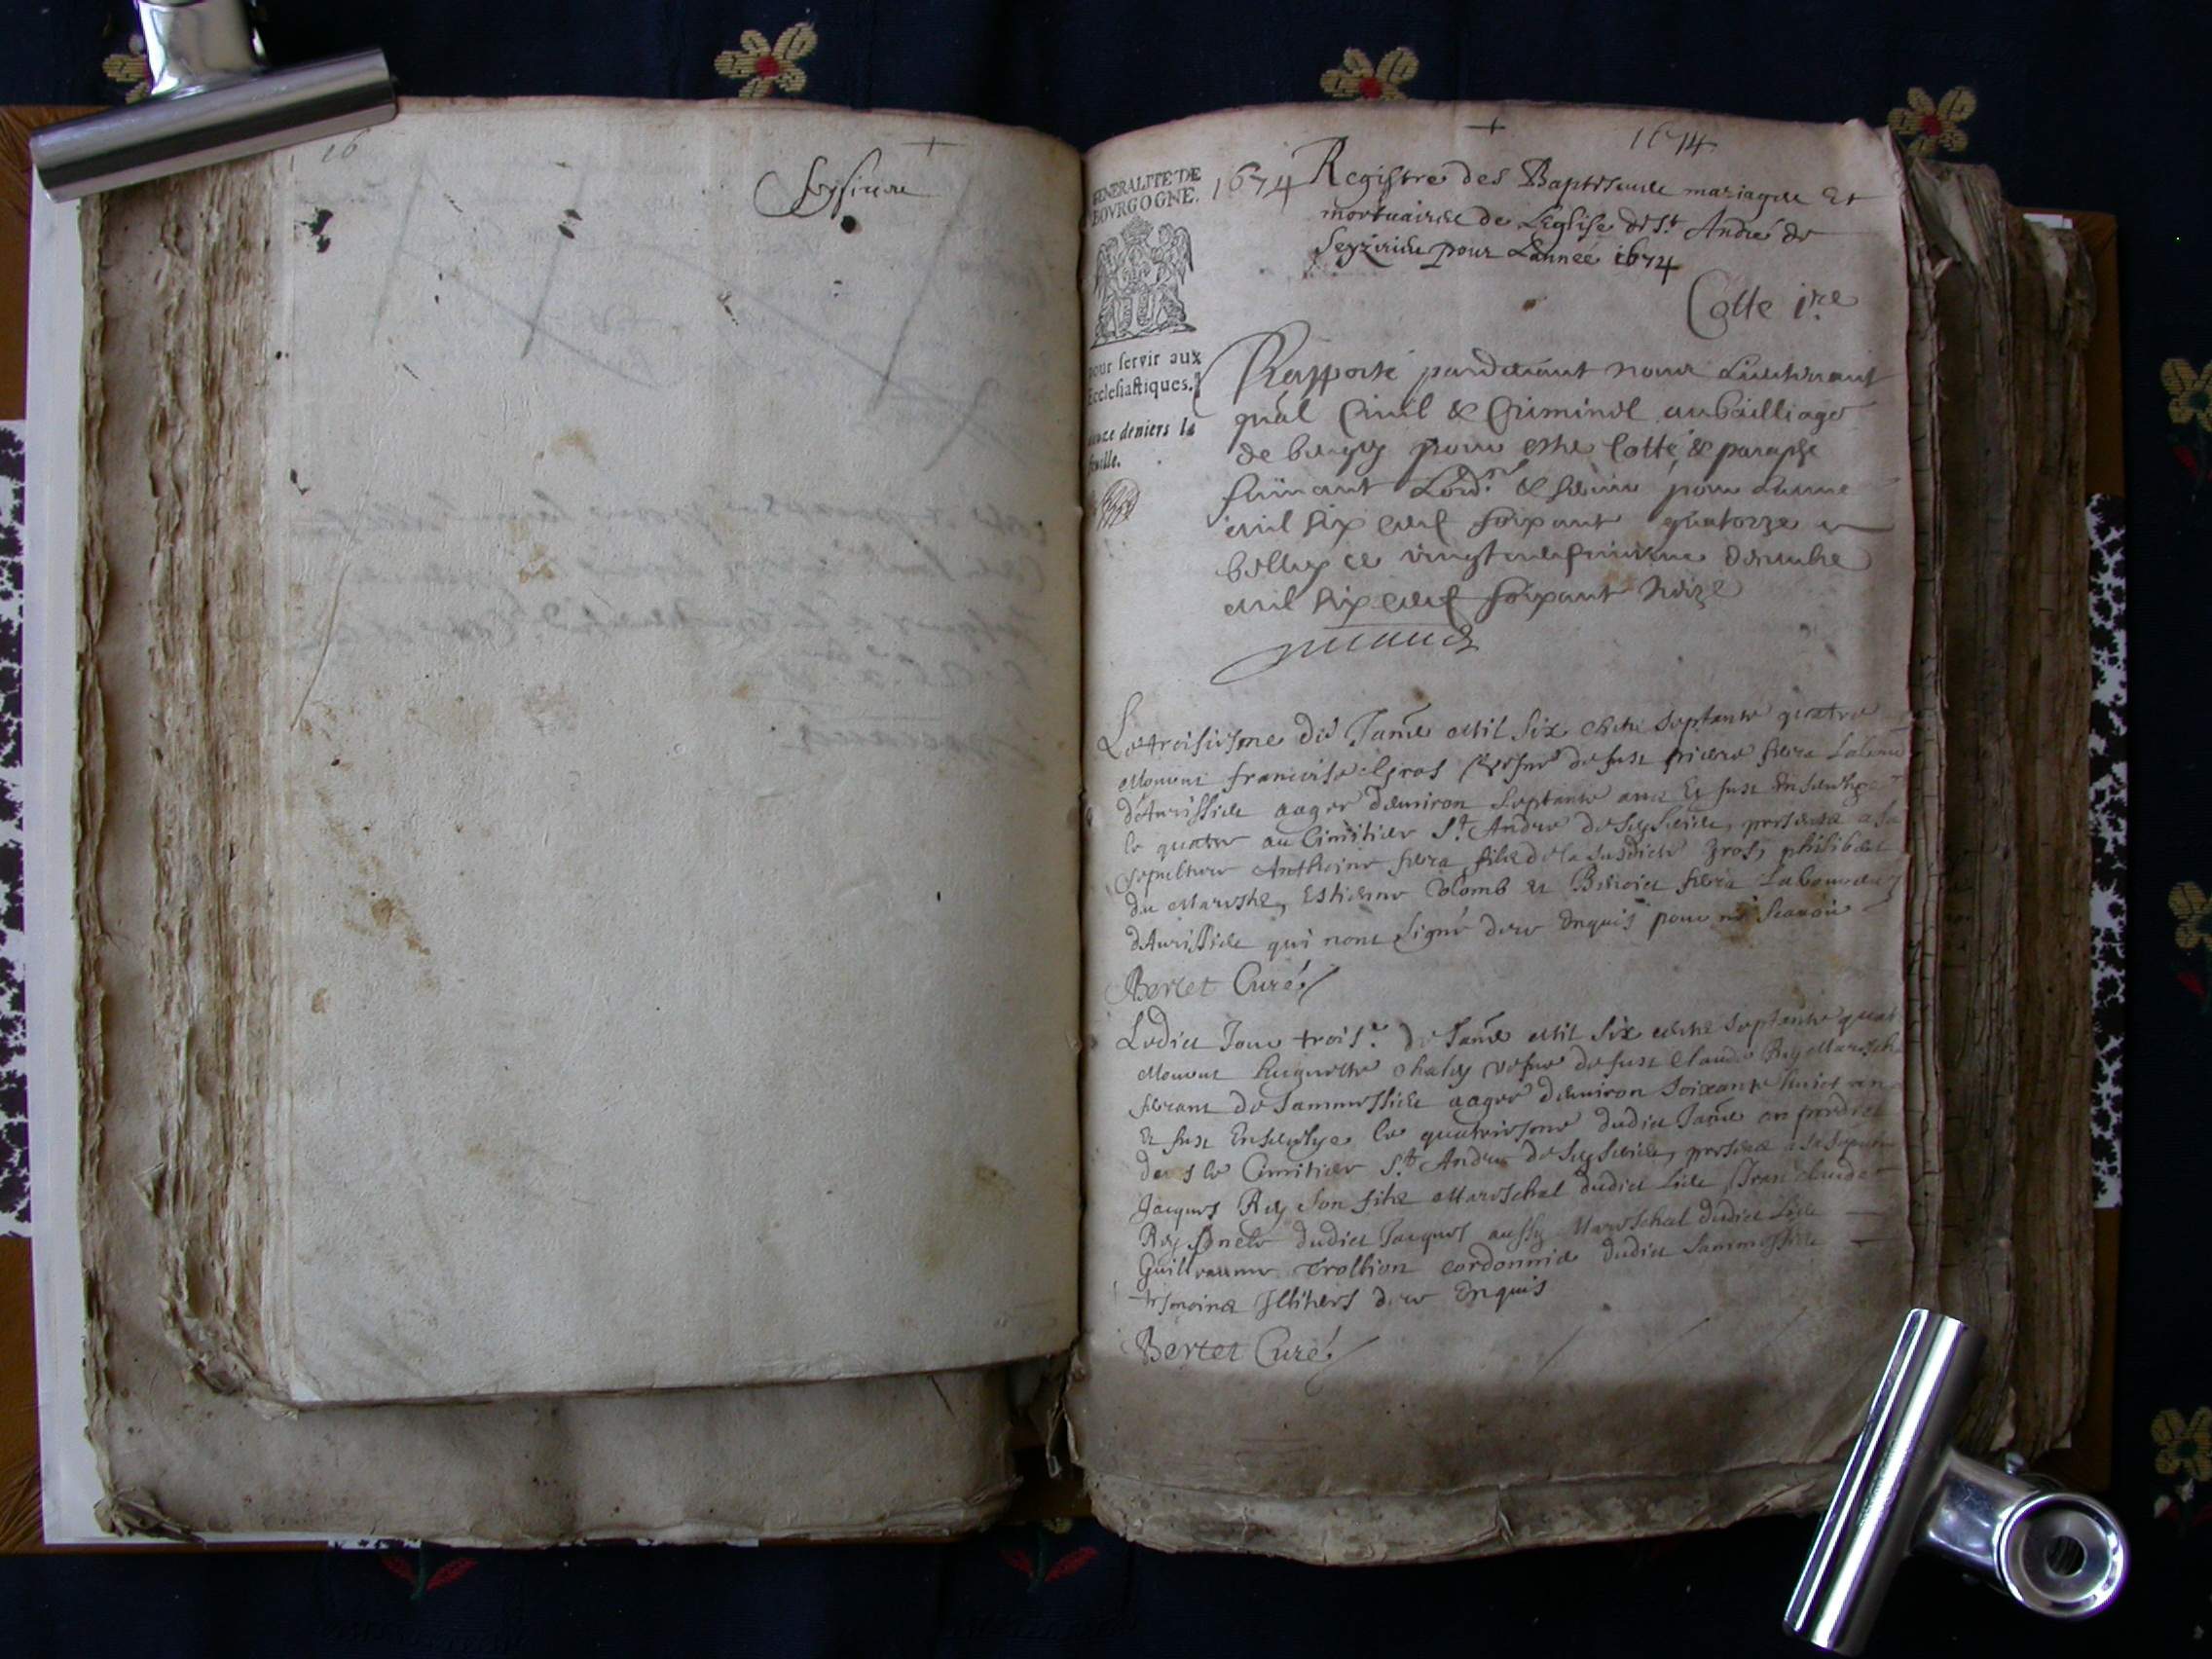 16
1674
GENERALITE DE
BOVRGOGNE.
pour servir aux
Ecclesiastiques.
deniers la
feuille.
1674 Registre des Baptesmes mariages Et
mortuaires de L'Eglise de St. André de
Seyzirieu pour L'année 1674
Cotte 1re
Rapporté pardevant nous Lieutenant
gnâl Civil & Criminel au bailliage
de beugey pour estre Cotté & paraphé
suivant Lord.e & servir pour L'année
mil six cent soixant quatorze a
belley ce vingt decembre
mil six cent soixant treize
Le troisiesme de Janvie Mil Six Cents Septante quatre
Mourut francoise Gros vefve de fust
d'Aurissieu aagee d'environ Septante ans Et fust Ensevelye
le quatre au Cimitiere St. André de Seysirieu, presents a sa
sepulture Anthoine filz de la susdicte gros, philibert
du Maresthz, Estienne Colomb et Benoict Laboureurs
d'Aurissieu qui nont signé de ce Enquis pour ne scavoir
Bertet Curé
Ledict Jour trois.e de Janvie Mil Six cents Septante quat
Mourut huguette chaley vefve de fust Claude Rey Maresch
ferrant de Sammissieu aagee d'environ Soixante huict an
Et fust Ensevelye le quatriesme dudict Janvie an predict
dans le Cimitiere St. André de Seysirieu, presents a sa sepultu
Jacques Rey son filz Mareschal dudict Lieu, Jean Claude
Rey oncle dudict Jacques aussy Mareschal dudict Lieu
Guillaume Trollion cordonnie dudict Sammissieu
tesmoins Illiters de ce Enquis
Bertet Curé